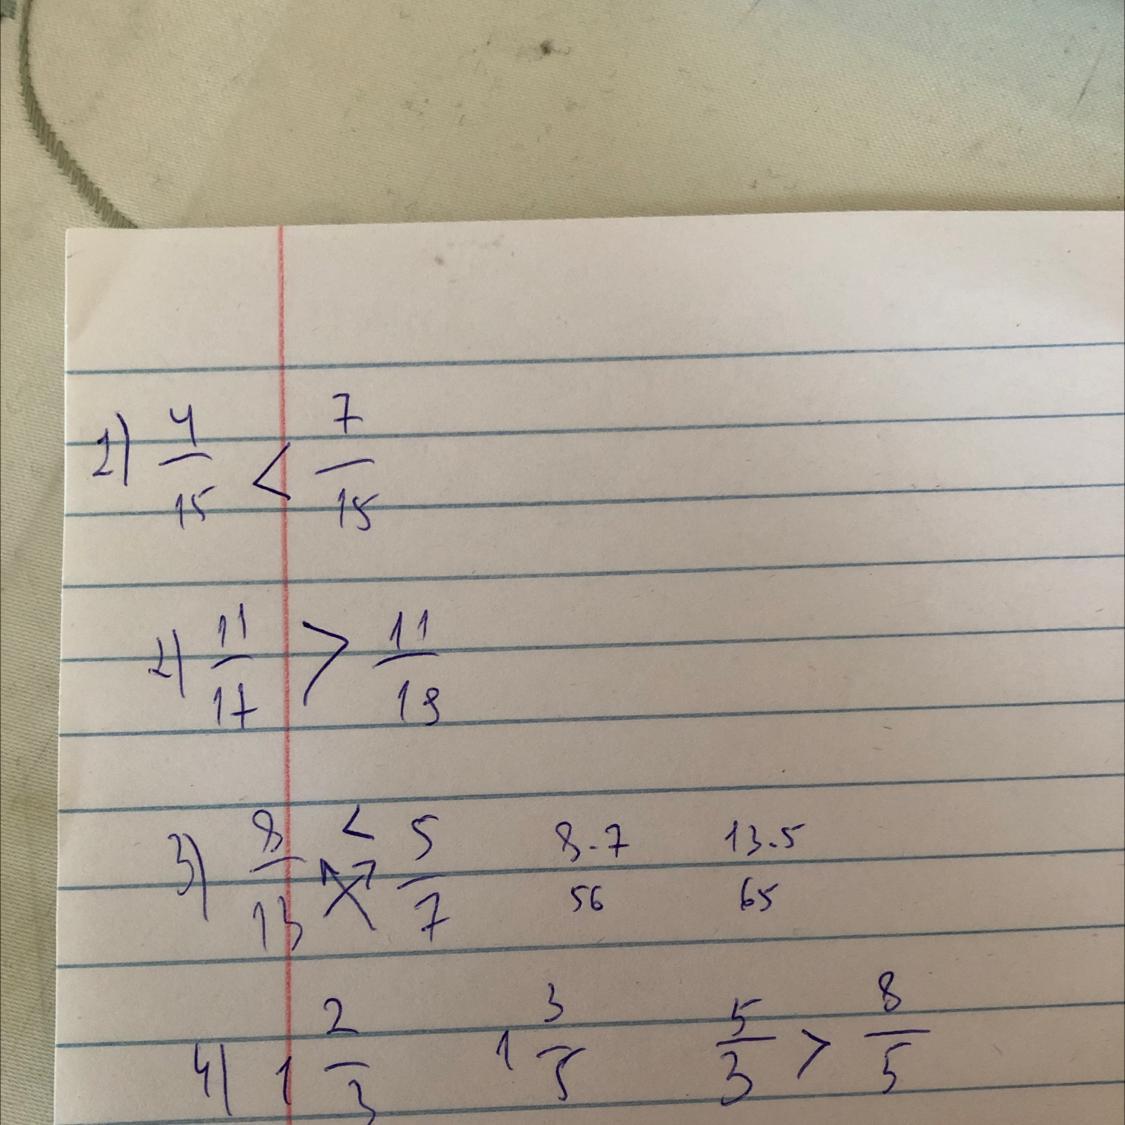 1) 4/15 < 7/15
2) 11/17 > 11/19
3) 8/13 < 5/7 8·7 13·5
56 65
4) 1 2/3 1 3/5 5/3 > 8/5